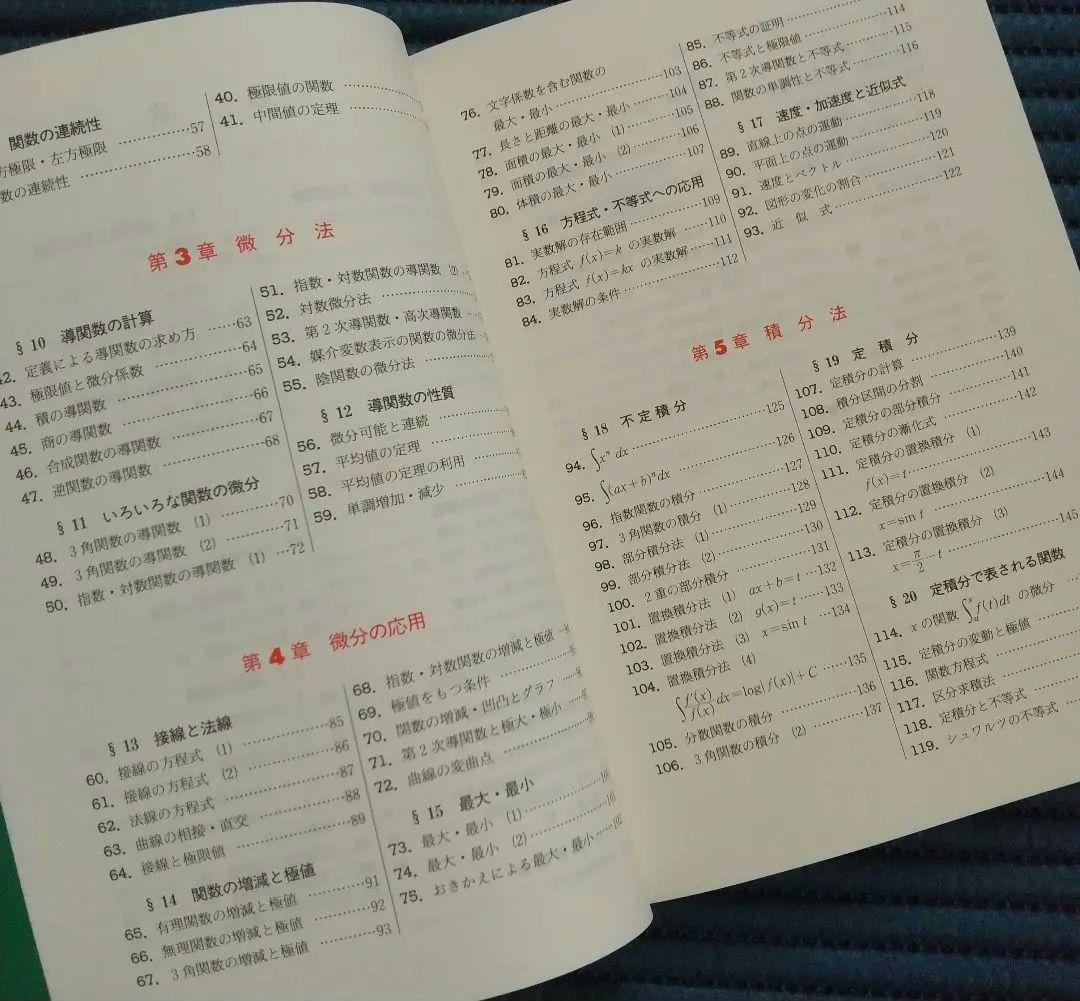 関数の連続性
方極限・左方極限 ……57
数の連続性 ……58
40. 極限値の関数
41. 中間値の定理
第3章 微分法
§10 導関数の計算
42. 定義による導関数の求め方 ……63
43. 極限値と微分係数 ……64
44. 積の導関数 ……65
45. 商の導関数 ……66
46. 合成関数の導関数 ……67
47. 逆関数の導関数 ……68
§11 いろいろな関数の微分
48. 3角関数の導関数 (1) ……70
49. 3角関数の導関数 (2) ……71
50. 指数・対数関数の導関数 (1) …72
51. 指数・対数関数の導関数 (2)
52. 対数微分法
53. 第2次導関数・高次導関数
54. 媒介変数表示の関数の微分法
55. 陰関数の微分法
§12 導関数の性質
56. 微分可能と連続
57. 平均値の定理
58. 平均値の定理の利用
59. 単調増加・減少
第4章 微分の応用
§13 接線と法線
60. 接線の方程式 (1) ……85
61. 接線の方程式 (2) ……86
62. 法線の方程式 ……87
63. 曲線の相接・直交 ……88
64. 接線と極限値 ……89
§14 関数の増減と極値
65. 有理関数の増減と極値 ……91
66. 無理関数の増減と極値 ……92
67. 3角関数の増減と極値 ……93
68. 指数・対数関数の増減と極値
69. 極値をもつ条件
70. 関数の増減・凹凸とグラフ
71. 第2次導関数と極大・極小
72. 曲線の変曲点
§15 最大・最小
73. 最大・最小 (1)
74. 最大・最小 (2)
75. おきかえによる最大・最小 ……102
76. 文字係数を含む関数の
最大・最小 ……103
77. 長さと距離の最大・最小 ……104
78. 面積の最大・最小 (1) ……105
79. 面積の最大・最小 (2) ……106
80. 体積の最大・最小 ……107
§16 方程式・不等式への応用
81. 実数解の存在範囲 ……109
82. 方程式 f(x)=k の実数解 ……110
83. 方程式 f(x)=kx の実数解 ……111
84. 実数解の条件 ……112
85. 不等式の証明 ……114
86. 不等式と極限値 ……115
87. 第2次導関数と不等式 ……116
88. 関数の単調性と不等式
§17 速度・加速度と近似式
89. 直線上の点の運動 ……118
90. 平面上の点の運動 ……119
91. 速度とベクトル ……120
92. 図形の変化の割合 ……121
93. 近似式 ……122
第5章 積分法
§18 不定積分
94. ∫xⁿ dx ……125
95. ∫(ax+b)ⁿdx ……126
96. 指数関数の積分 ……127
97. 3角関数の積分 (1) ……128
98. 部分積分法 (1) ……129
99. 部分積分法 (2) ……130
100. 2重の部分積分 ……131
101. 置換積分法 (1) ax+b=t …132
102. 置換積分法 (2) g(x)=t ……133
103. 置換積分法 (3) x=sin t ……134
104. 置換積分法 (4)
∫f′(x)/f(x) dx=log|f(x)|+C ……135
105. 分数関数の積分 ……136
106. 3角関数の積分 (2) ……137
§19 定積分
107. 定積分の計算 ……139
108. 積分区間の分割 ……140
109. 定積分の部分積分 ……141
110. 定積分の漸化式 ……142
111. 定積分の置換積分 (1)
f(x)=t ……143
112. 定積分の置換積分 (2)
x=sin t ……144
113. 定積分の置換積分 (3)
x=π/2−t ……145
§20 定積分で表される関数
114. xの関数∫ₐˣf(t)dt の微分
115. 定積分の変動と極値
116. 関数方程式
117. 区分求積法
118. 定積分と不等式
119. シュワルツの不等式